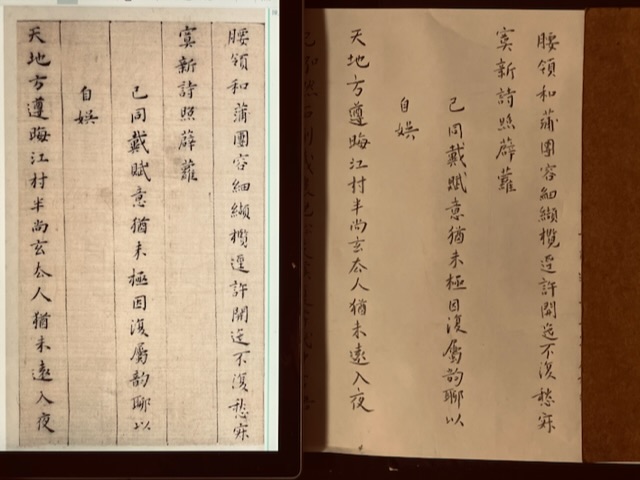 腰領和蒲團容細纈欖遑許開迄不復愁寂
寞新詩照薜蘿
已同戴賦意猶未極因復屬韵聊以
自娛
天地方遵晦江村半尚玄人猶未遠入夜
腰領和蒲團容細纈欖遑許開迄不復愁寂
寞新詩照薜蘿
已同戴賦意猶未極因復屬韵聊以
自娛
天地方遵晦江村半尚玄人猶未遠入夜